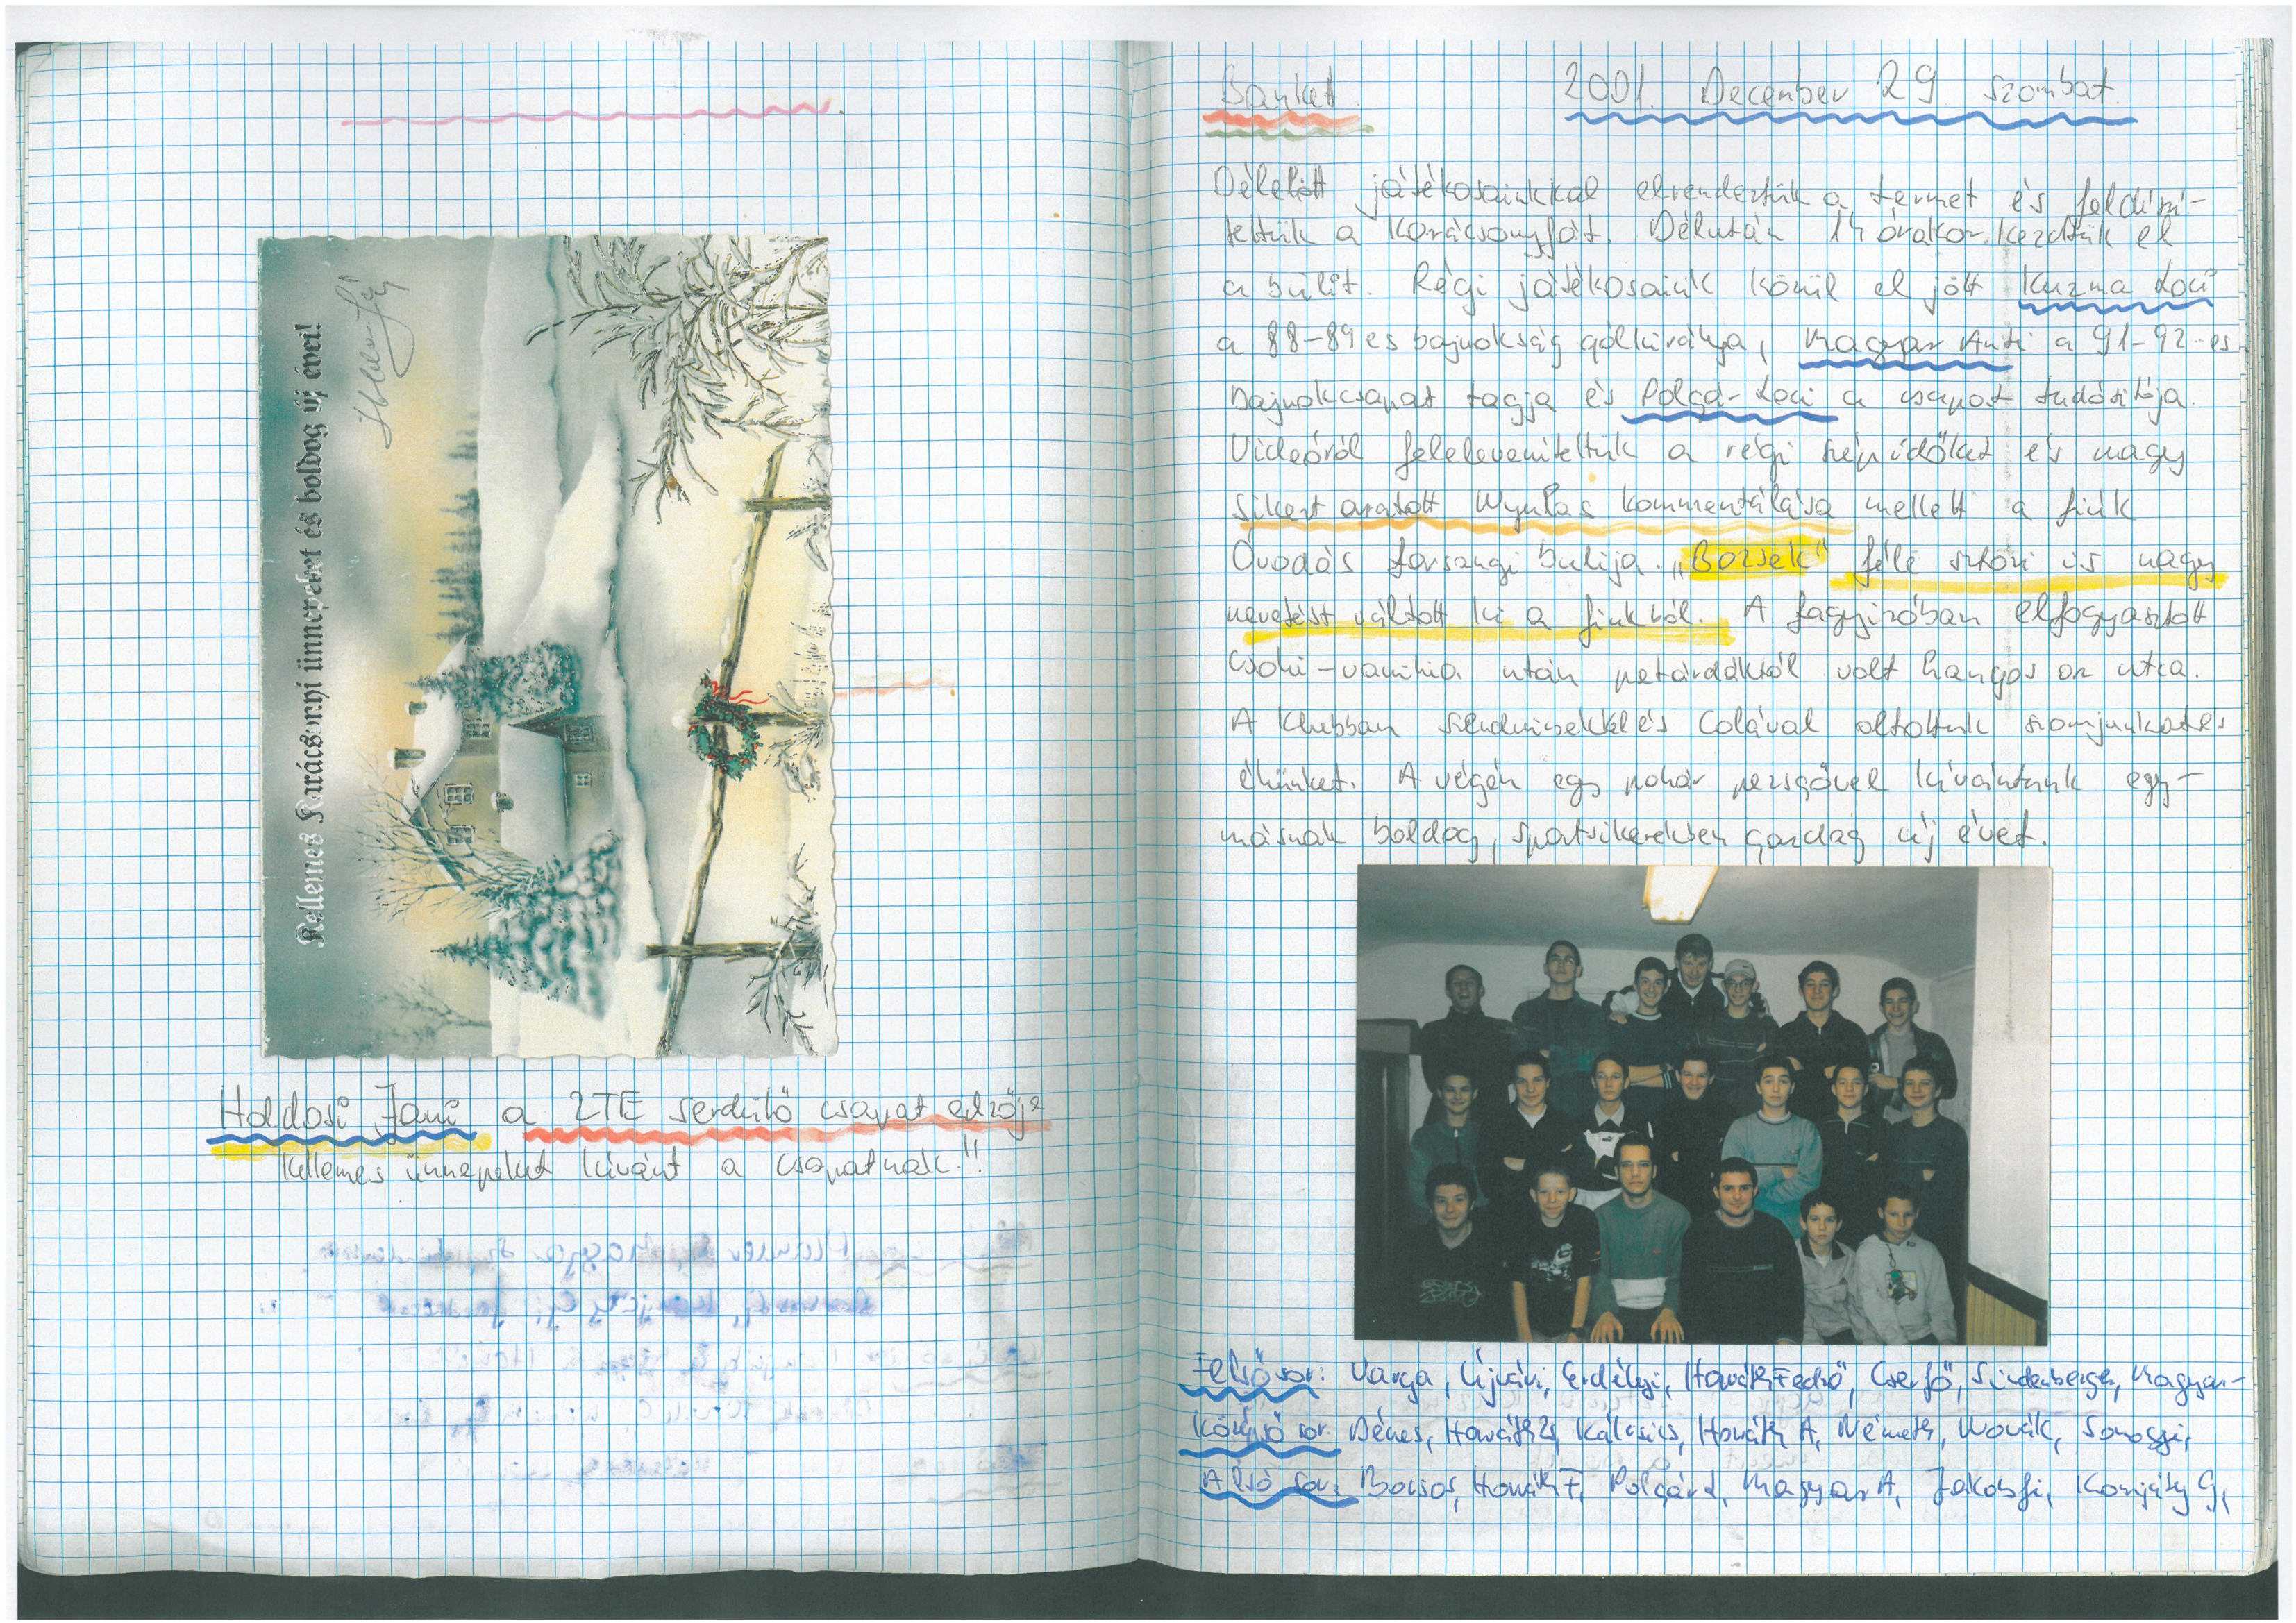 Kellemes Karácsonyi ünnepeket és boldog új évet!
Holdosi Jani a ZTE serdülő csapat edzője
kellemes ünnepeket kívánt a csapatnak!!
Banket 2001. December 29 szombat.
Délelőtt játékosainkkal elrendeztük a termet és feldíszí-
tettük a karácsonyfát. Délután 14 órakor kezdtük el
a bulit. Régi játékosaink közül el jött Kuzma Loci
a 88-89 es bajnokság gólkirálya, Magyar Anti a 91-92-es
bajnokcsapat tagja és Polgár Loci a csapat tudósítója.
Videóról felelevenítettük a régi szép időket és nagy
sikert aratott kommentálása mellett a fiúk
Óvodás farsangi bulija. „Bozsek" féle sztori is nagy
nevetést váltott ki a fiúkból. A fagyizóban elfogyasztott
csoki-vanília után petárdáktól volt hangos az utca.
A klubban szendvicsekkel és Colával oltottuk szomjunkat és
éhünket. A végén egy pohár pezsgővel kívántunk egy-
másnak boldog, sportsikerekben gazdag új évet.
Felső sor: Varga, Újvári, Erdélyi, Horváth Fedró, Cserfő, Lindenberger, Magyar-
Középső sor: Dénes, Horváth Zs, Kálcsics, Horváth A, Németh, Novák, Somogyi,
Alsó sor: Bocsor, Horváth F, Polgár L, Magyar A, Jakabfi, Komjáty G,